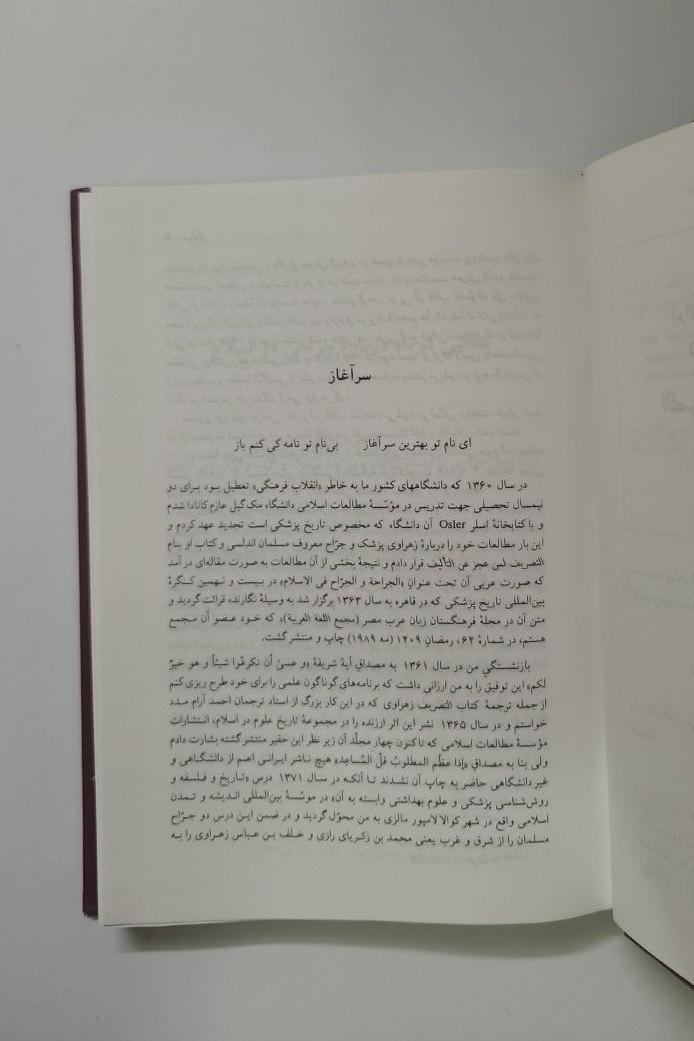 سرآغاز
ای نام تو بهترین سرآغاز بی‌نام تو نامه کی کنم باز
در سال ۱۳۶۰ که دانشگاههای کشور ما به خاطر «انقلاب فرهنگی» تعطیل بود برای دو
نیمسال تحصیلی جهت تدریس در مؤسّسهٔ مطالعات اسلامی دانشگاه مک‌گیل عازم کانادا شدم
و با کتابخانهٔ اسلر Osler آن دانشگاه که مخصوص تاریخ پزشکی است تجدید عهد کردم و
این بار مطالعات خود را دربارهٔ زهراوی پزشک و جرّاح معروف مسلمان اندلسی و کتاب او بنام
التصریف لمن عجز عن التألیف قرار دادم و نتیجهٔ بخشی از آن مطالعات به صورت مقاله‌ای در آمد
که صورت عربی آن تحت عنوانِ «الجراحة و الجرّاح فی الاسلام» در بیست و نهمین کنگرهٔ
بین‌المللی تاریخ پزشکی که در قاهره به سال ۱۳۶۳ برگزار شد به وسیلهٔ نگارنده قرائت گردید و
متن آن در مجلهٔ فرهنگستان زبان عرب مصر (مجمع اللغة العربیة)، که خود عضو آن مجمع
هستم، در شمارهٔ ۶۴، رمضان ۱۴۰۹ (مه ۱۹۸۹) چاپ و منتشر گشت.
بازنشستگیِ من در سال ۱۳۶۱ به مصداق آیهٔ شریفهٔ «و عسیٰ أن تکرهُوا شیئاً و هو خیرٌ
لکم» این توفیق را به من ارزانی داشت که برنامه‌های گوناگون علمی را برای خود طرح ریزی کنم
از جمله ترجمهٔ کتاب التصریف زهراوی که در این کار بزرگ از استاد ترجمان احمد آرام مدد
خواستم و در سال ۱۳۶۵ نشر این اثر ارزنده را در مجموعهٔ تاریخ علوم در اسلام، انتشارات
مؤسسهٔ مطالعات اسلامی که تاکنون چهار مجلّد آن زیر نظر این حقیر منتشر گشته بشارت دادم
ولی بنا به مصداقِ «إذا عظُم المطلوبُ قلّ المُساعِد» هیچ ناشر ایرانی اعم از دانشگاهی و
غیر دانشگاهی حاضر به چاپ آن نشدند تا آنکه در سال ۱۳۷۱ درس «تاریخ و فلسفه و
روش‌شناسی پزشکی و علوم بهداشتی وابسته به آن» در موسّسهٔ بین‌المللی اندیشه و تمدن
اسلامی واقع در شهر کوالالامپور مالزی به من محوّل گردید و در ضمن این درس دو جرّاح
مسلمان را از شرق و غرب یعنی محمد بن زکریای رازی و خلف بن عباس زهراوی را به